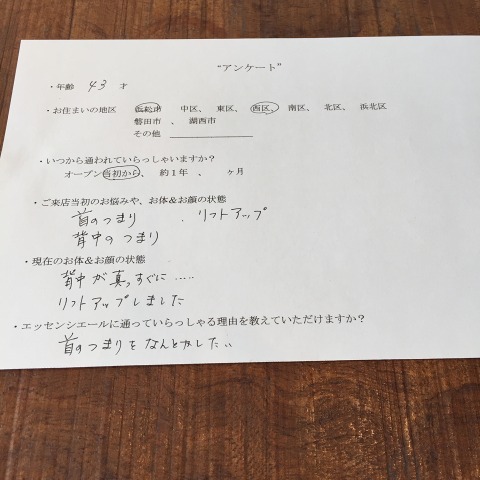 “アンケート”
・年齢 43 才
・お住まいの地区 浜松市 中区、 東区、 西区、 南区、 北区、 浜北区
磐田市 、 湖西市
その他
・いつから通われていらっしゃいますか？
オープン当初から、 約１年 、 ヶ月
・ご来店当初のお悩みや、お体＆お顔の状態
首のつまり . リフトアップ
背中のつまり
・現在のお体＆お顔の状態
背中が真っすぐに.....
リフトアップしました
・エッセンシエールに通っていらっしゃる理由を教えていただけますか？
首のつまりをなんとかしたい